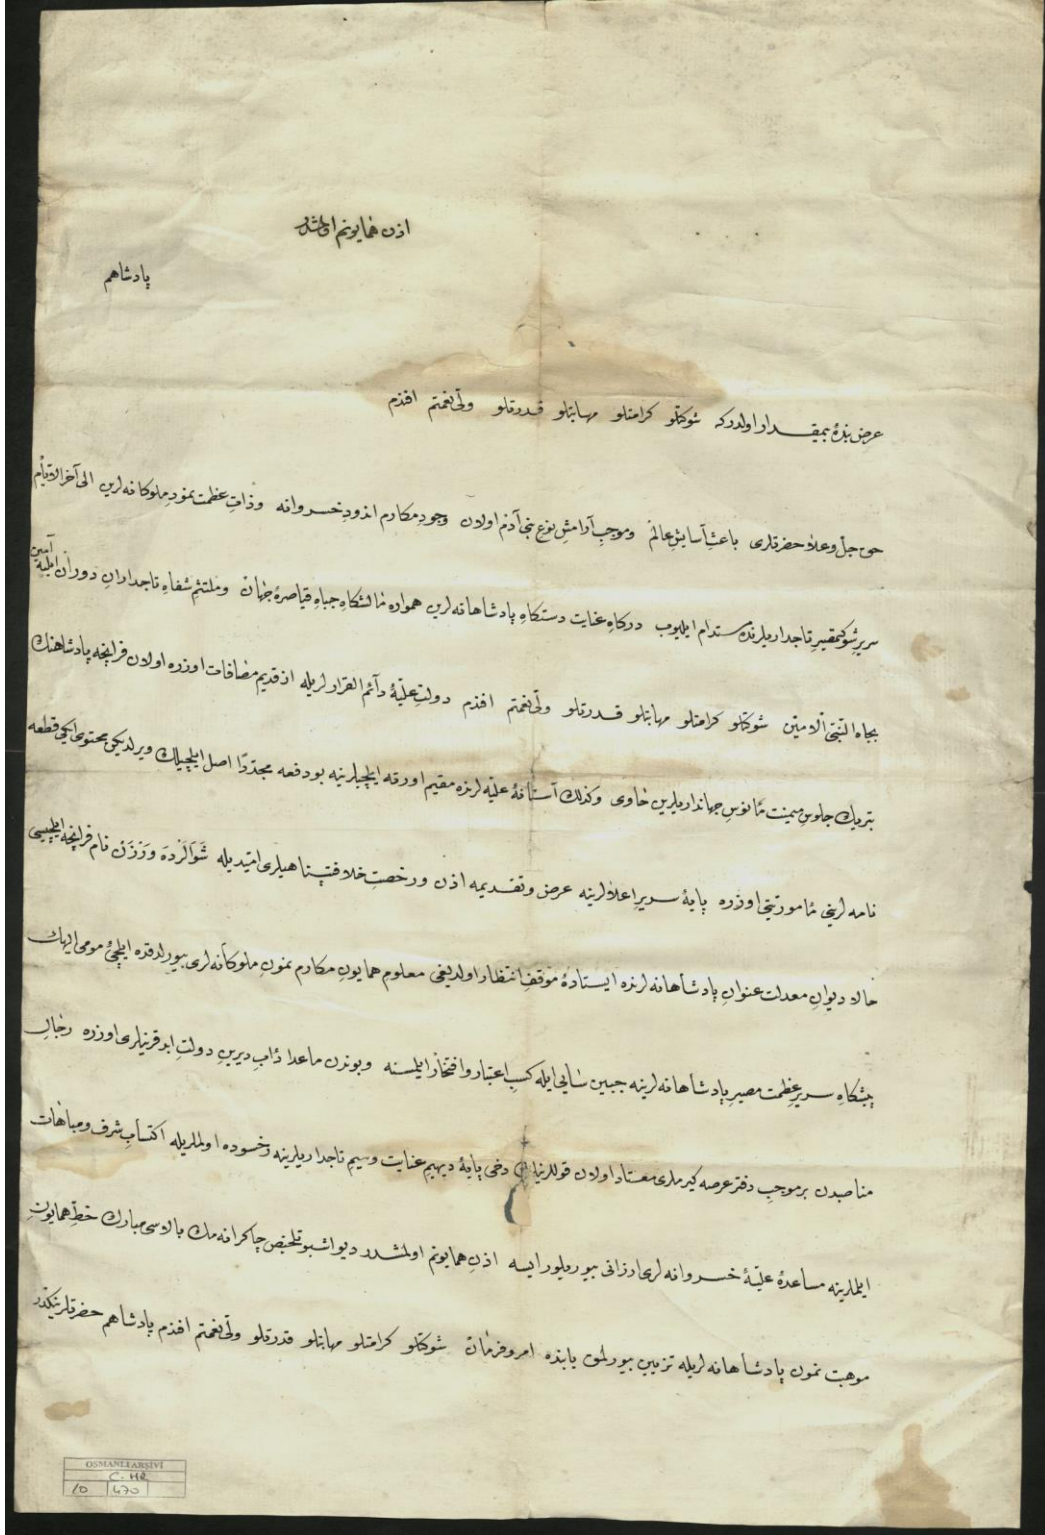 اذن همايونم اولمشدر
پادشاهم
عرض بندهٔ بيمقدار اولدركه شوكتلو كرامتلو مهابتلو قدرتلو ولى نعمتم افندم
حق جل وعلا حضرتلرى باعث آسايش عالم وموجب آرامش نوع بنى آدم اولان وجود مكارم اندود خسروانه وذات عظمت نمود ملوكانه لرين الى آخر الايام
سرير شوكتمصير تاجداريلرنده مستدام ايليوب دركاه عنايت دستكاه پادشاهانه لرين همواره مالشكاه جباه قياصرهٔ جهان وملتثم شفاه تاجداران دوران ايليه آمين
بجاه النبى الامين شوكتلو كرامتلو مهابتلو قدرتلو ولى نعمتم افندم دولت عليهٔ دائم القرارلريله از قديم مصافات اوزره اولان فرانچه پادشاهنك
تبريك جلوس ميمنت مأنوس جهانداريلرين حاوى وكذلك آستانهٔ عليه لرنده مقيم اورته ايلچيلرينه بو دفعه مجددا اصل ايلچيلك ويرلديكن محتوى ايكى قطعه
نامه لرينى مأموريتى اوزره پايهٔ سرير اعلالرينه عرض وتقديمه اذن ورخصت خلافتپناهيلرى اميديله شوالرده ورژن نام فرانچه ايلچيسى
حالا ديوان معدلت عنوان پادشاهانه لرنده ايستادهٔ موقف انتظار اولديغى معلوم همايون مكارم نمون ملوكانه لرى بيورلدقده ايلچئ مومى اليهك
پيشكاه سرير عظمت مصير پادشاهانه لرينه جبين سايى ايله كسب اعتبار وافتخار ايلمسنه وبوندن ماعدا دأب ديرين دولت ابدقرينلرى اوزره رجال
مناصبدن بر موجب دفتر عرضه كيرملرى معتاد اولان قوللرينك دخى پايهٔ ديهيم عنايت وسيم تاجداريلرينه رخسوده اولملريله اكتساب شرف ومباهات
ايلملرينه مساعدهٔ عليهٔ خسروانه لرى ارزانى بيوريلور ايسه اذن همايونم اولمشدر ديو اشبو تلخيص چاكرانه مك بالاسى مبارك خط همايون
موهبت نمون پادشاهانه لريله تزيين بيورلمق بابنده امر وفرمان شوكتلو كرامتلو مهابتلو قدرتلو ولى نعمتم افندم پادشاهم حضرتلرينكدر
OSMANLI ARŞİVİ
C.HR
10 470